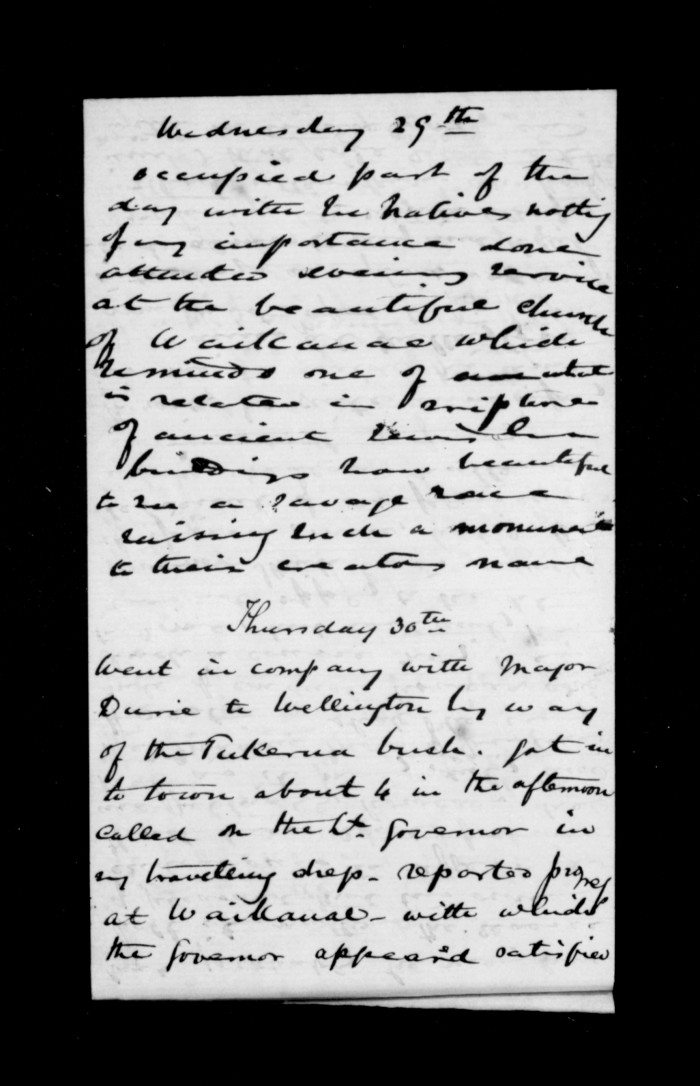 Wednesday 29th
occupied part of the
day with the Natives nothig
of my importance done
attended evening service
at the beautiful church
of Waikanae which
reminds one of what
is related in Scripture
of ancient
buildings how beautiful
to see a savage race
raising such a monument
to their creators name
Thursday 30th
Went in company with Major
Durie to Wellington by way
of the Pukerua bush. got in
to town about 4 in the afternoon
called on the Lt. Governor in
my travelling dress - reported progress
at Waikanae - with which
the Governor appeared satisfied